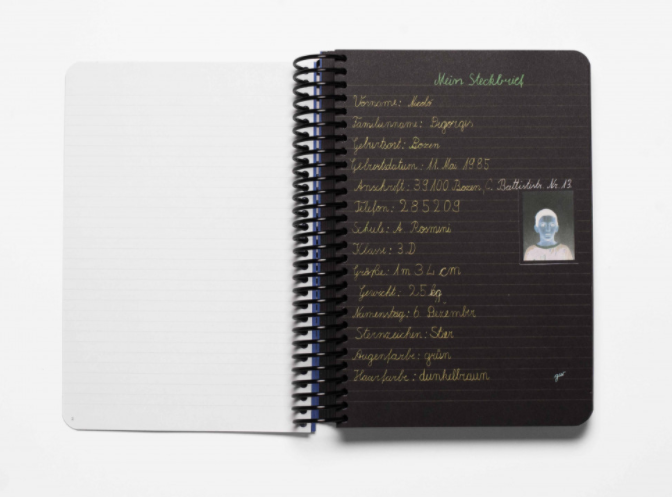 Mein Steckbrief
Vorname: Nicolò
Familienname: Degorgis
Geburtsort: Bozen
Geburtsdatum: 11. Mai 1985
Anschrift: 39100 Bozen C. Battististr. Nr. 13
Telefon: 285209
Schule: A. Rosmini
Klasse: 3.D
Größe: 1m 34 cm
Gewicht: 25 kg
Namenstag: 6. Dezember
Sternzeichen: Stier
Augenfarbe: grün
Haarfarbe: dunkelbraun